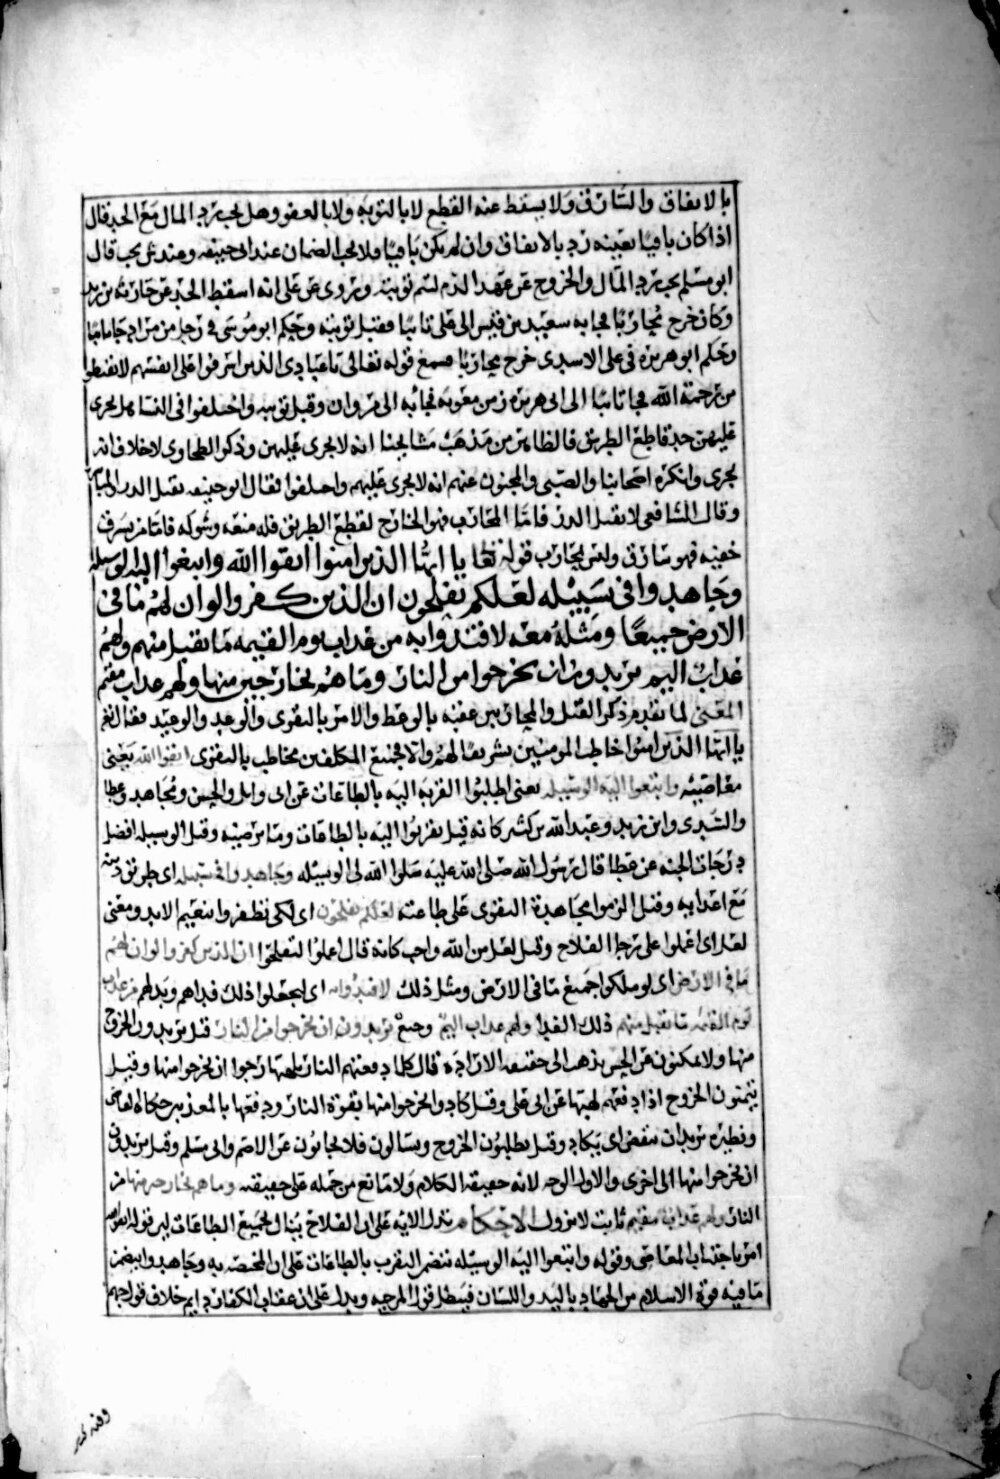 بالاتفاق والسارق ولا يسقط عنه القطع لا بالتوبه ولا بالعفو وهل يجب رد المال مع الحد قال
اذا كان باقيا بعينه رد بالاتفاق وان لم يكن باقيا فلا يجب الضمان عند ابى حنيفه وعند ش يجب قال
ابو مسلم يجب رد المال والخروج عن عهد الذم لتتم توبته وروى عن على انه اسقط الحد عن حارثة بن زيد
وكان خرج محاربا فجا به سعيد بن قيس الى على تائبا فقبل توبته وحكم ابو موسى فى رجل من مراد جا تائبا
وحكم ابو هريره فى على الاسدى خرج محاربا فسمع قوله تعالى يا عبادى الذين اسرفوا على انفسهم لا تقنطوا
من رحمة الله فجا تائبا الى ابى هريره زمن معويه فجا به الى مروان وقبل توبته واختلفوا فى النسا هل يجرى
عليهن حد قاطع الطريق فالظاهر من مذهب مشايخنا انه لا يجرى عليهن وذكر الطحاوى لا خلاف انه
يجرى وانكره اصحابنا والصبى والمجنون عنهم انه لا يجرى عليهم واختلفوا فقال ابو حنيفه يقتل الردء
وقال الشافعى لا يقتل الردء فاما المحارب فهو الخارج لقطع الطريق فله منعه وشوكه فاما من يسرق
خفيه فهو سارق وليس بمحارب قوله تعا يا ايها الذين امنوا اتقوا الله وابتغوا اليه الوسيله
وجاهدوا فى سبيله لعلكم تفلحون ان الذين كفروا لو ان لهم ما فى
الارض جميعا ومثله معه لافتدوا به من عذاب يوم القيمه ما تقبل منهم ولهم
عذاب اليم يريدون ان يخرجوا من النار وما هم بخارجين منها ولهم عذاب مقيم
المعنى لما تقدم ذكر القتل والمحاربين عقبه بالوعظ والامر بالتقوى والوعد والوعيد فقال تع
يا ايها الذين امنوا خاطب المومنين تشريفا لهم والا فجميع المكلفين مخاطب بالتقوى اتقوا الله يعنى
معاصيه وابتغوا اليه الوسيله يعنى اطلبوا القربه اليه بالطاعات عن ابى وايل والحسن ومجاهد وعطا
والسدى وابن زيد وعبد الله بن كثير كانه قيل تقربوا اليه بالطاعات وما يرضيه وقيل الوسيله افضل
درجات الجنه عن عطا قال رسول الله صلى الله عليه سلوا الله لى الوسيله وجاهدوا فى سبيله اى طريق دينه
مع اعدايه وقيل الزموا مجاهدة التقوى على طاعته لعلكم تفلحون اى لكى تظفروا بنعيم الابد ومعنى
لعل اى اعملوا على رجا الفلاح وقيل لعل من الله واجب كانه قال اعملوا لتفلحوا ان الذين كفروا لو ان لهم
ما فى الارض اى لو ملكوا جميع ما فى الارض ومثل ذلك لافتدوا به اى لجعلوا ذلك فداهم وبدلهم من عذاب
يوم القيمه ما تقبل منهم ذلك الفدا ولهم عذاب اليم وجيع يريدون ان يخرجوا من النار قيل يريدون الخروج
منها ولا يمكنون عن الحسن يذهب الى حقيقه الاراده قال كلما دفعتهم النار بلهبها رجوا ان يخرجوا منها وقيل
يتمنون الخروج اذا دفعهم لهبها عن ابى على وقيل كادوا يخرجوا منها بقوة النار ودفعها بالمعذبين حكاه القاضى
ونظيره يريد ان ينقض اى يكاد وقيل يطلبون الخروج ويسالون فلا يجابون عن الاصم وابى مسلم وقيل يريدون
ان يخرجوا منها الى اخرى والاول الوجه لانه حقيقة الكلام ولا مانع من حمله على حقيقته وما هم بخارجين منها من
النار ولهم عذاب مقيم ثابت لا يزول الاحكام تدل الايه على ان الفلاح ينال بجميع الطاعات لان قوله اتقوا
امر باجتناب المعاصى وقوله وابتغوا اليه الوسيله تتضمن التقرب بالطاعات على ان المختصه به وجاهدوا يتضمن
ما فيه قوة الاسلام من الجهاد باليد واللسان فيبطل قول المرجيه ويدل على ان عقاب الكفار دايم خلاف قول جهم